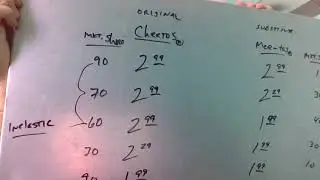 ORIGINAL SUBSTITUTE
MKT. Cheetos® Mee-tos®
90 2.99 2.99
70 2.99 2.29
60 2.99 1.99
INELASTIC
30 2.29 1.99
1.99 1.99